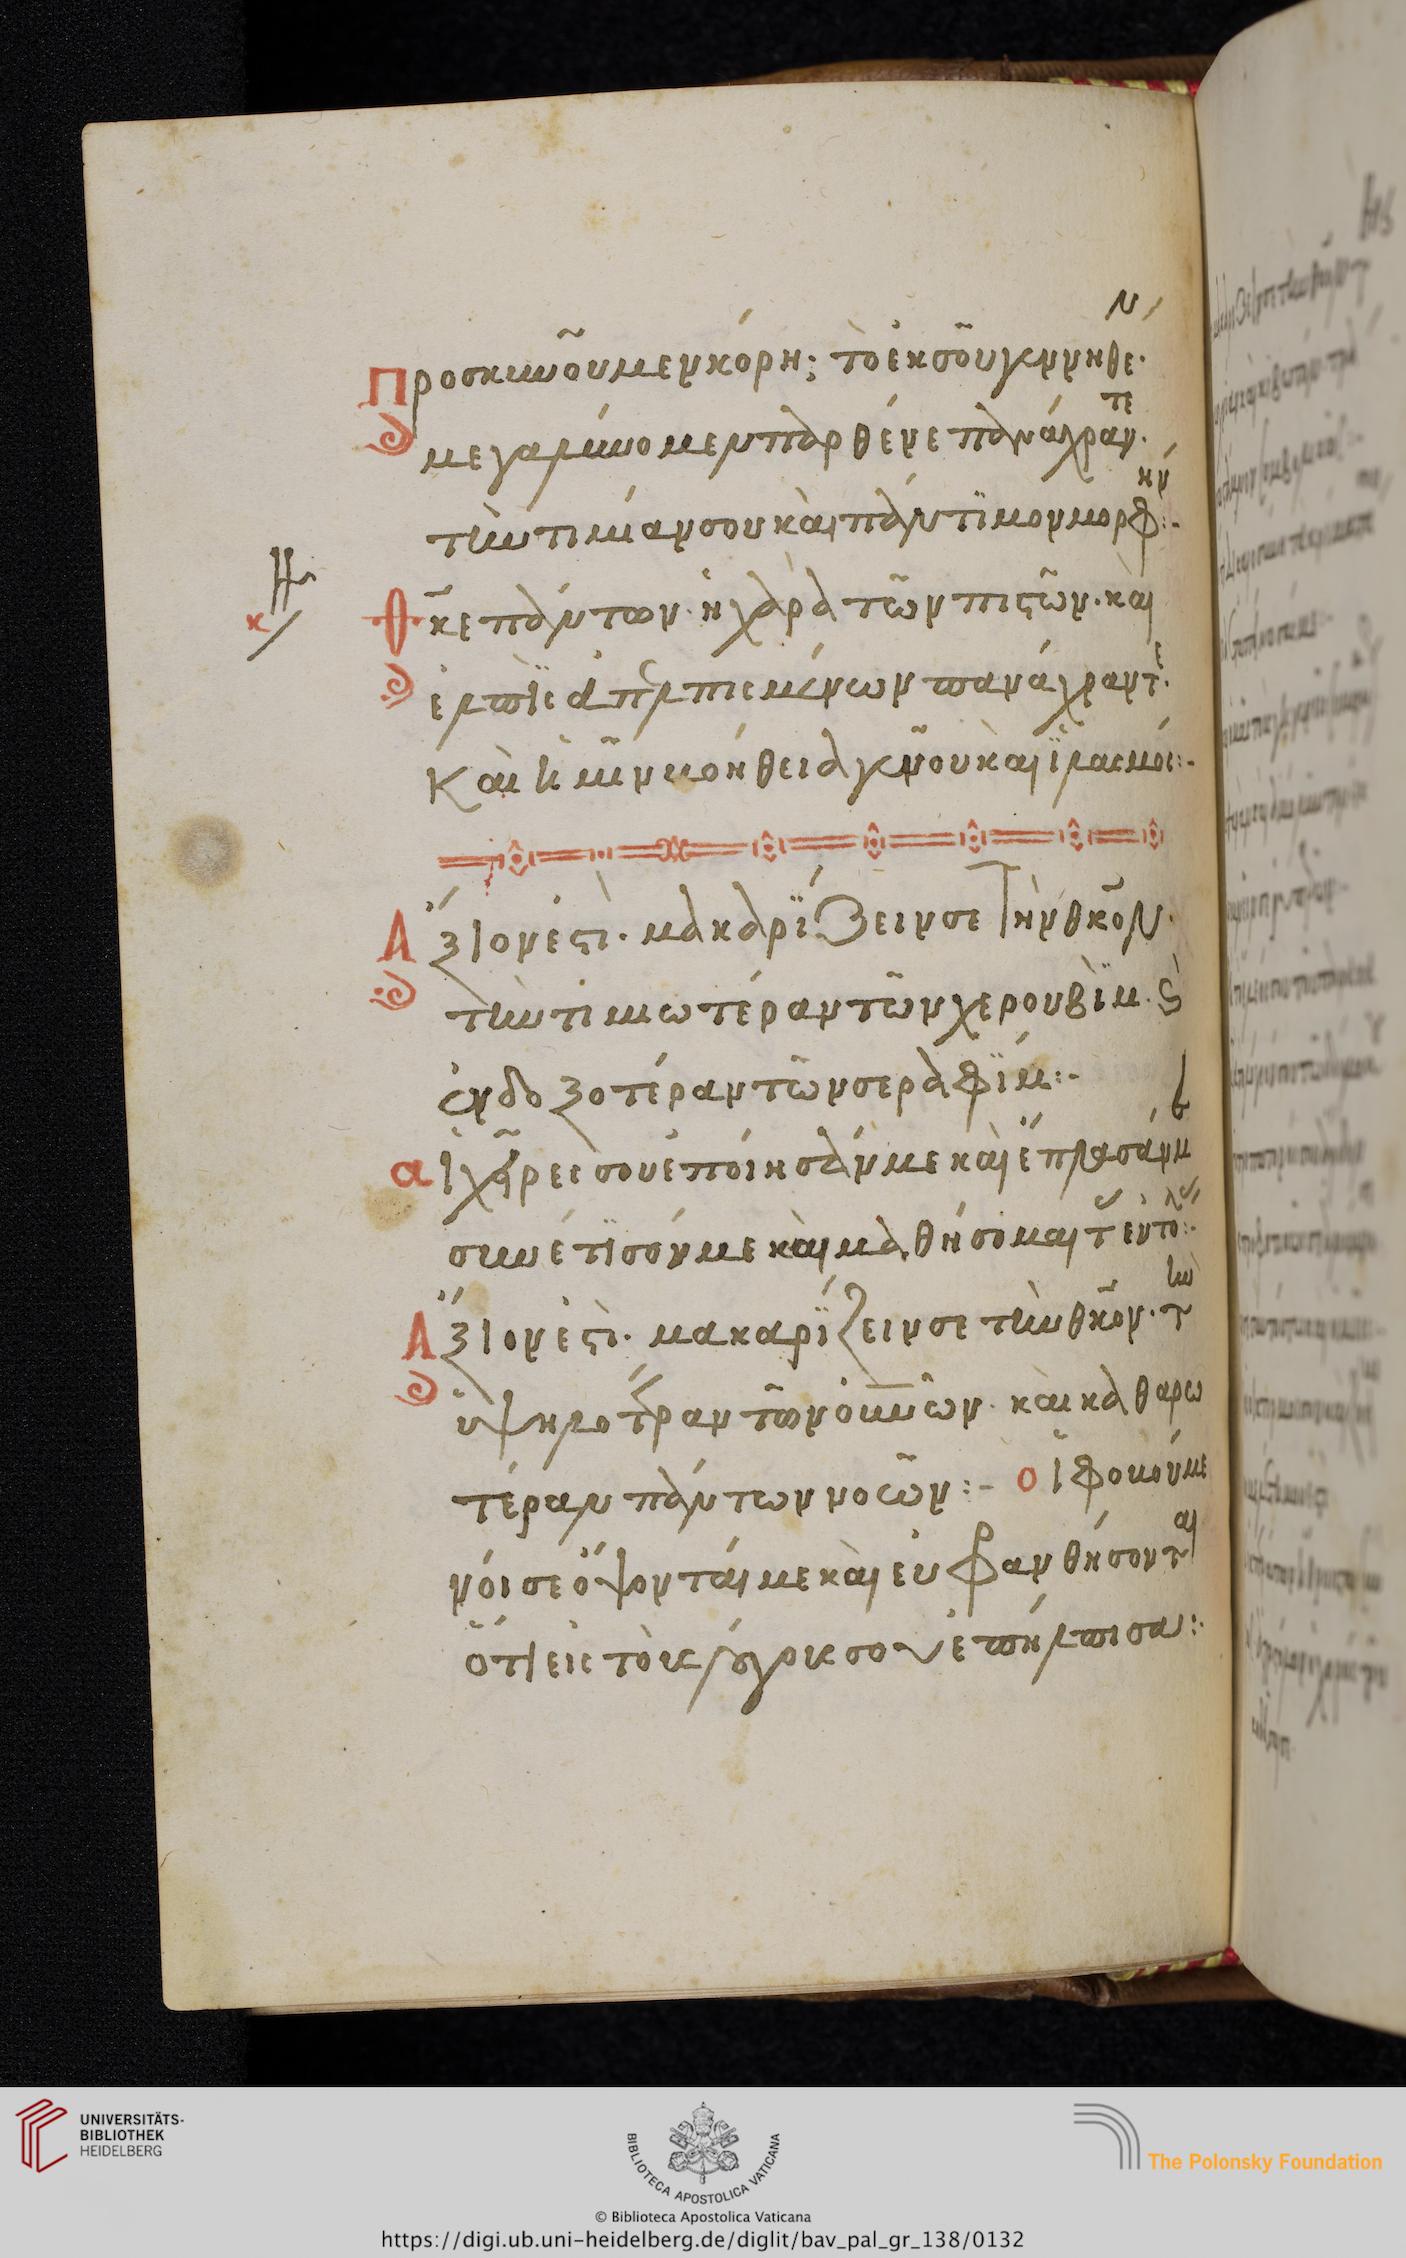 Προσκυνοῦμεν κόρη; τὸ ἐκ σοῦ γεννηθέν·
μεγαλύνομεν παρθένε πανάχραντε·
τὴν τιμίαν σου καὶ πάντϊμον μορφήν:-
Θκε πάντων· ἡ χαρὰ τῶν πιστῶν· καὶ
ἐλπῒς ἀπηλπισμένων πανάχραντε·
Καὶ ἡμῖν βοήθεια γενοῦ καὶ ἱλασμός:-
Ἄξιον ἐστὶ· μακαρΐζειν σε τὴν θκον·
τὴν τιμιωτέραν τῶν χερουβὶμ· καὶ
ἐνδοξοτέραν τῶν σεραφὶμ:-
αἱ χεῖρες σου ἐποίησάν με καὶ ἔπλασάν με
συνέτϊσόν με καὶ μαθήσομαι τὰς ἐντολάς:-
Ἄξιον ἐστὶ· μακαρΐζειν σε τὴν θκον· τὴν
ὑψηλοτέραν τῶν οὐνῶν· καὶ καθαρω
τέραν πάντων νοῶν:- οἱ φοβούμε
νοι σε ὄψονταί με καὶ εὐφρανθήσονται
ὅτι εἰς τοὺς λόγους σου ἐπήλπισα:-
UNIVERSITÄTS-
BIBLIOTHEK
HEIDELBERG
BIBLIOTECA APOSTOLICA VATICANA
The Polonsky Foundation
© Biblioteca Apostolica Vaticana
https://digi.ub.uni-heidelberg.de/diglit/bav_pal_gr_138/0132